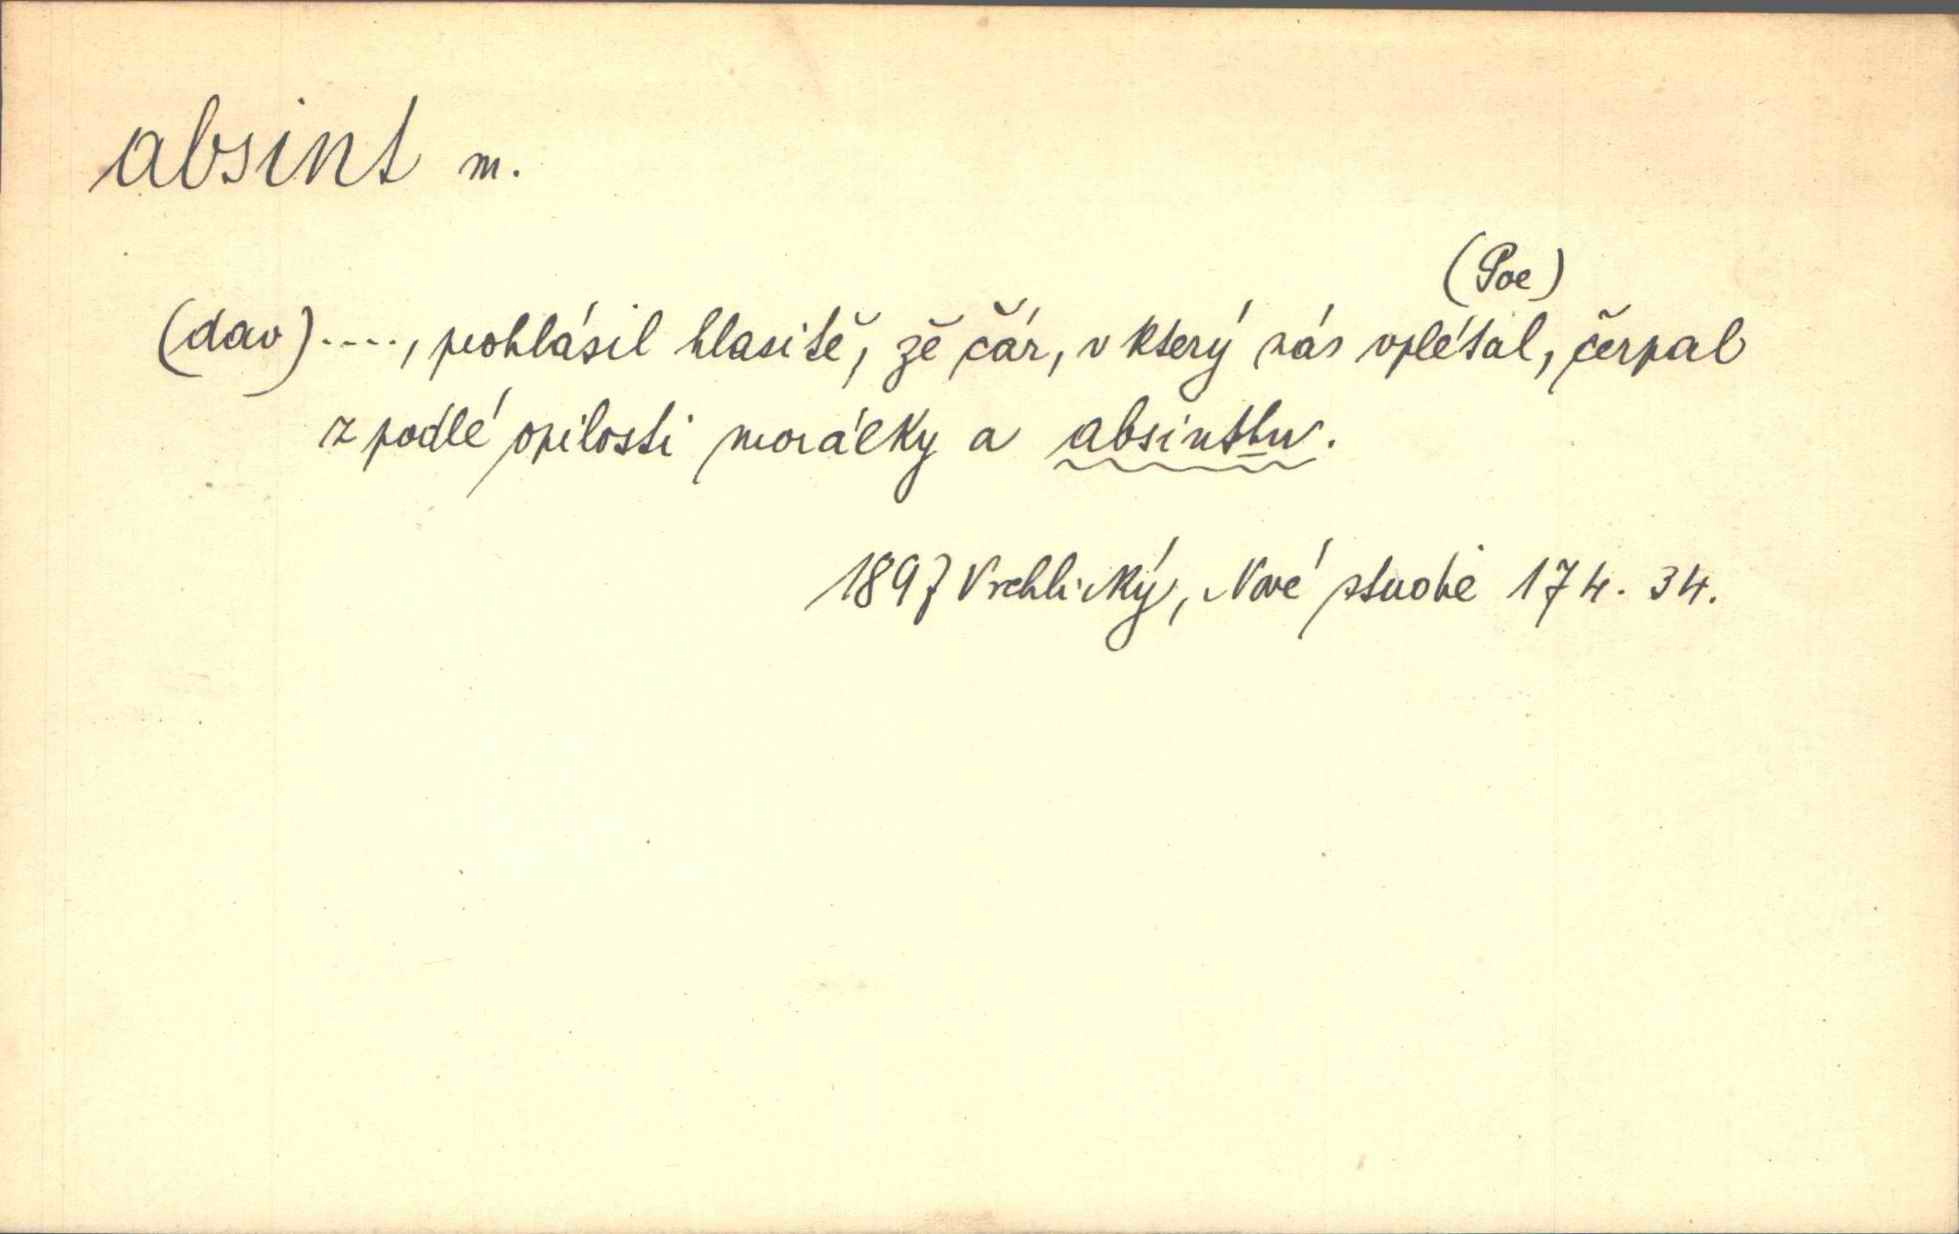 absint m.
(Poe)
(dav)...., prohlásil hlasitě, že čár, v který nás vplétal, čerpal
z podlé opilosti morálky a absinthu.
1897 Vrchlický, Nové studie 174. 34.